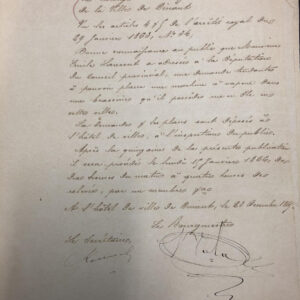 de la Ville de Dinant
Vu les articles 4 & 5 de l'arrêté royal du
29 Janvier 1863, Nº 46,
Donne connaissance au public que Monsieur
Emile Laurent a adressé à la Députation
du Conseil provincial, une demande tendante
à pouvoir placer une machine à vapeur dans
une brasserie qu'il possède en
cette ville.
La demande & les plans sont déposés à
l'hôtel de ville, à l'inspection du public.
Après la quinzaine de la présente publication
il sera procédé le lundi Janvier 1866, de
dix heures du matin à quatre heures de
relevée, par un membre
A l'hôtel de ville de Dinant, le 22 Décembre
Le Bourgmestre
Le Secrétaire,